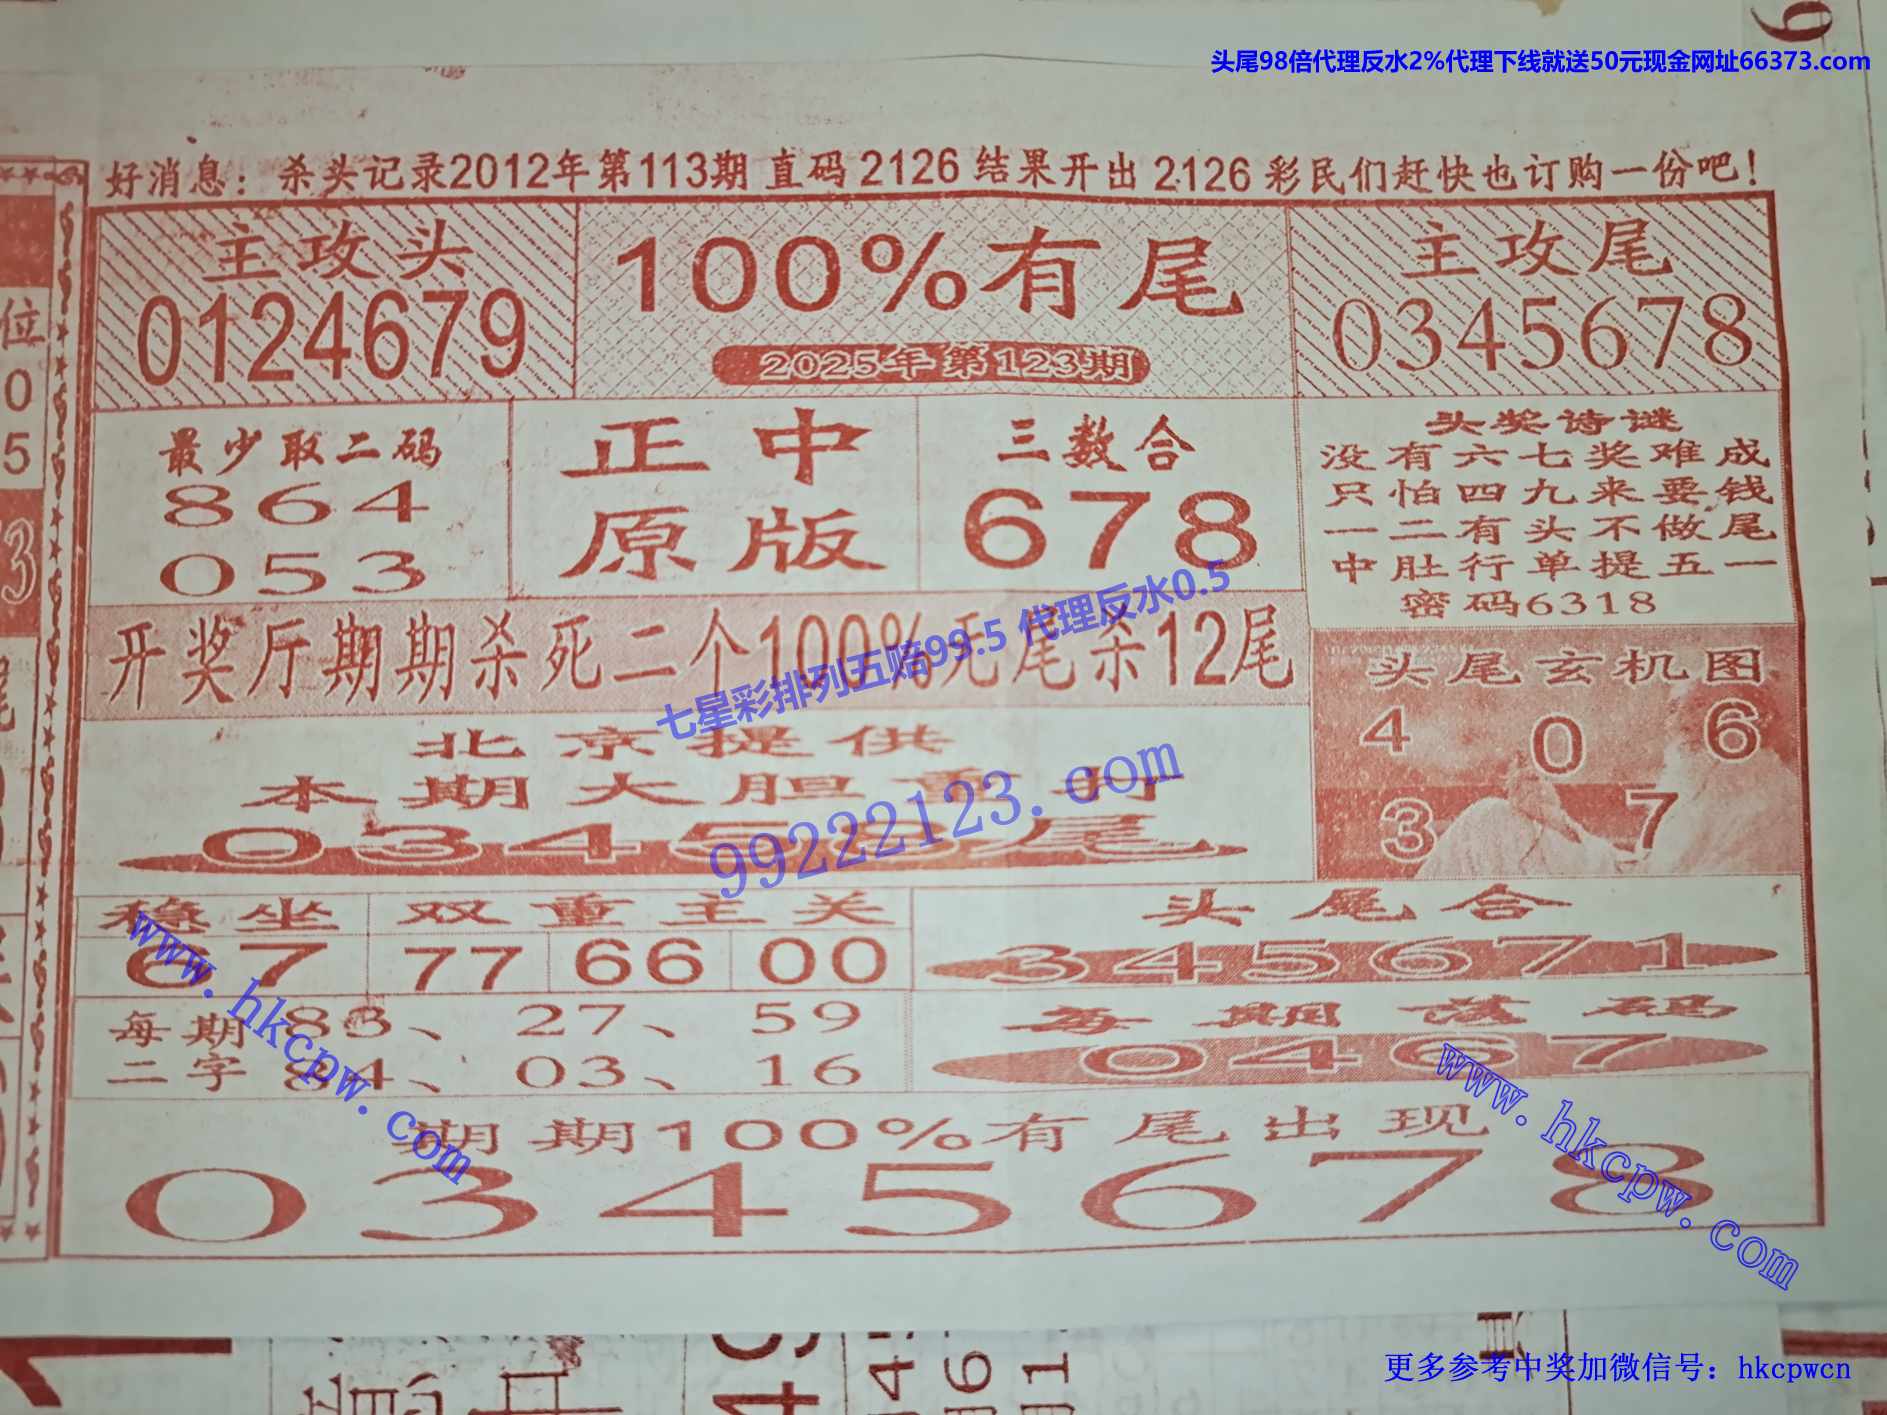 头尾98倍代理反水2%代理下线就送50元现金网址66373.com
好消息：杀头记录2012年第113期 直码 2126 结果开出 2126 彩民们赶快也订购一份吧！
主攻头
0124679
100%有尾
2025年第123期
主攻尾
0345678
最少取二码
864
053
正中
原版
三数合
678
头奖诗谜
没有六七奖难成
只怕四九来要钱
一二有头不做尾
中肚行单提五一
密码6318
开奖厅期期杀死二个100%无尾杀12尾
七星彩排列五赔99.5 代理反水0.5
头尾玄机图
4 0 6
3 7
北京提供
本期大胆重打
03458尾
99222123.com
稳坐
67
双重主关
77 66 00
头尾合
345671
每期 83、 27、 59
二字 84、 03、 16
每期落码
0467
www.hkcpw.com
www.hkcpw.com
期期100%有尾出现
0345678
更多参考中奖加微信号：hkcpwcn